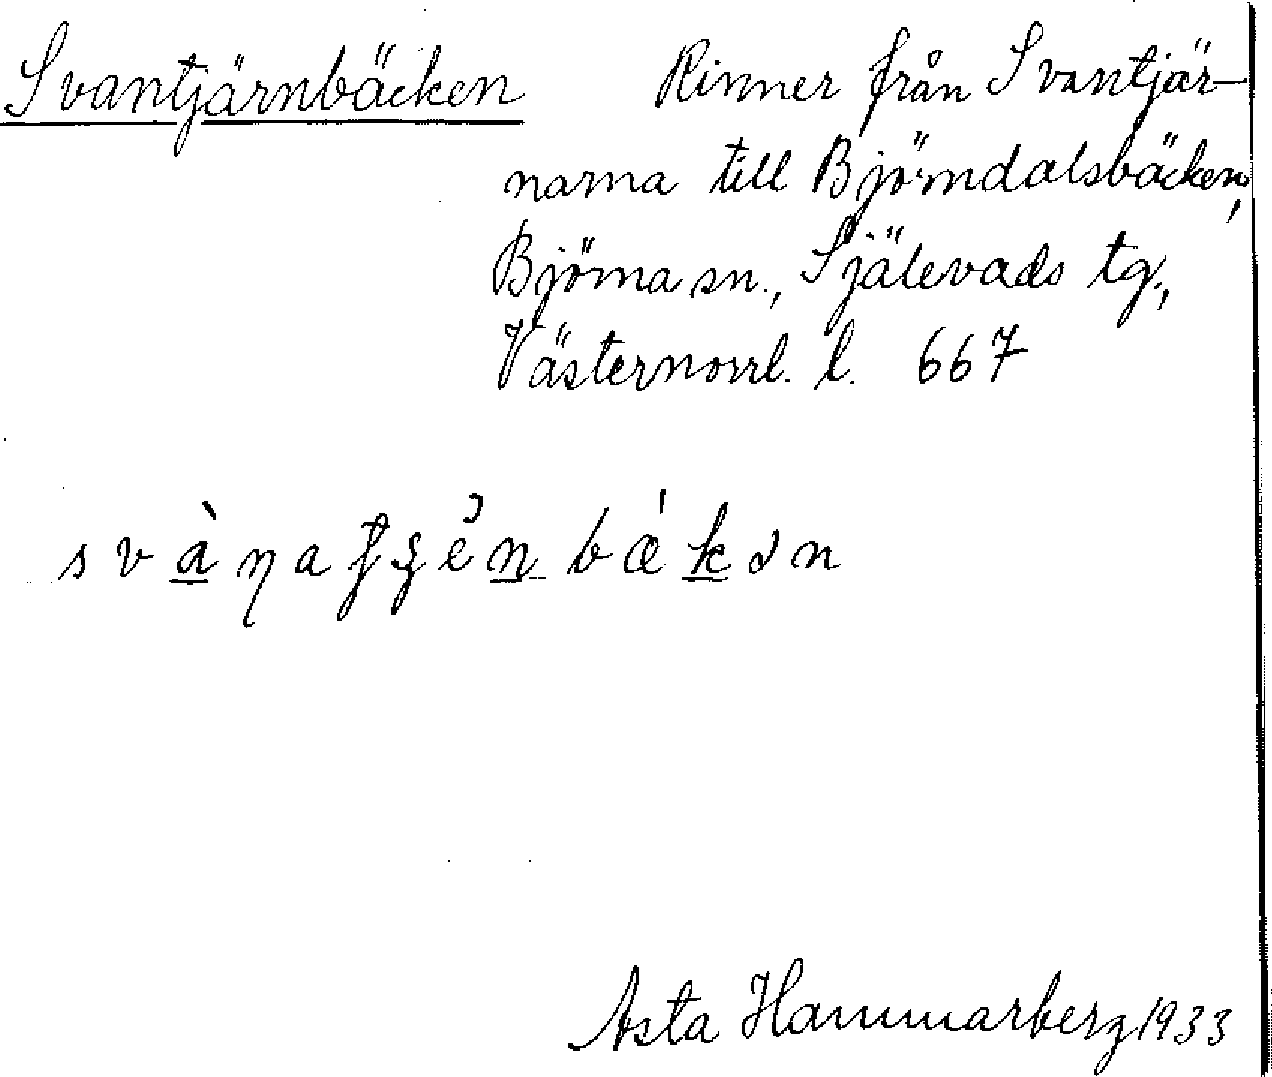 Svantjärnbäcken Rinner från Svantjär-
narna till Björndalsbäcken,
Björna sn., Själevads tg.,
Västernorrl. l. 667
Asta Hammarberg 1933